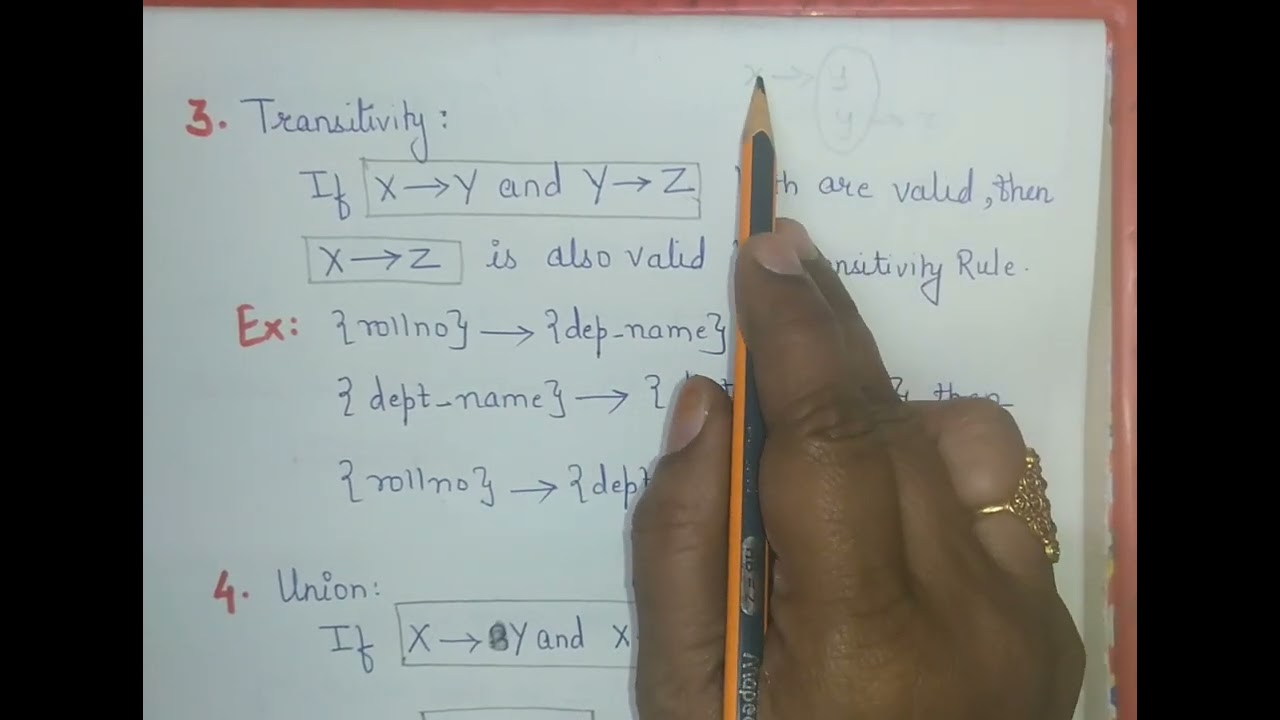 x → y
y →
3. Transitivity:
If X → Y and Y → Z are valid, then
X → Z is also valid Rule.
Ex: {rollno} → {dep-name}
{dept-name} → { } then
{rollno} → {dept
4. Union:
If X → Y and X